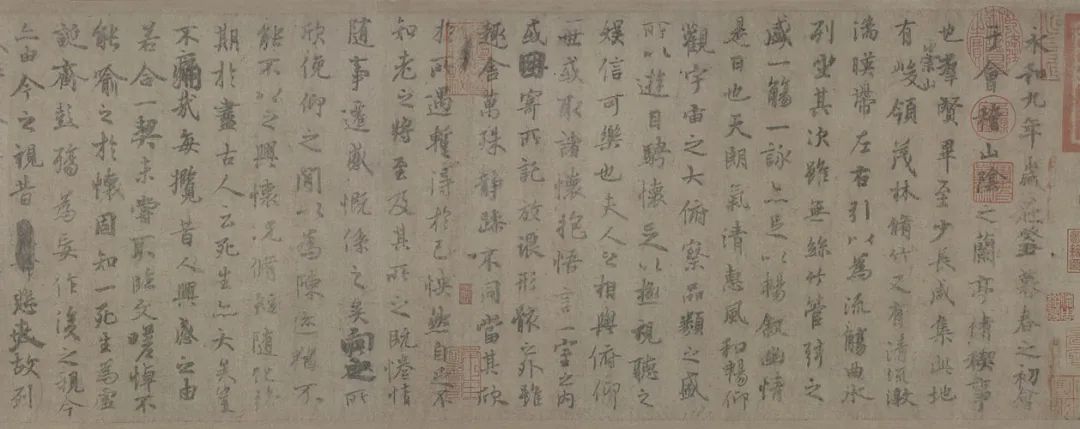 永和九年歲在癸丑暮春之初會
于會稽山陰之蘭亭脩禊事
也羣賢畢至少長咸集此地
有崇山峻領茂林脩竹又有清流激
湍暎帶左右引以為流觴曲水
列坐其次雖無絲竹管弦之
盛一觴一詠亦足以暢敘幽情
是日也天朗氣清惠風和暢仰
觀宇宙之大俯察品類之盛
所以遊目騁懷足以極視聽之
娛信可樂也夫人之相與俯仰
一世或取諸懷抱悟言一室之內
或因寄所託放浪形骸之外雖
趣舍萬殊靜躁不同當其欣
於所遇暫得於己怏然自足不
知老之將至及其所之既惓情
隨事遷感慨係之矣向之所
欣俛仰之閒以為陳迹猶不
能不以之興懷況脩短隨化終
期於盡古人云死生亦大矣豈
不痛哉每攬昔人興感之由
若合一契未嘗不臨文嗟悼不
能喻之於懷固知一死生為虛
誕齊彭殤為妄作後之視今
亦由今之視昔悲夫故列